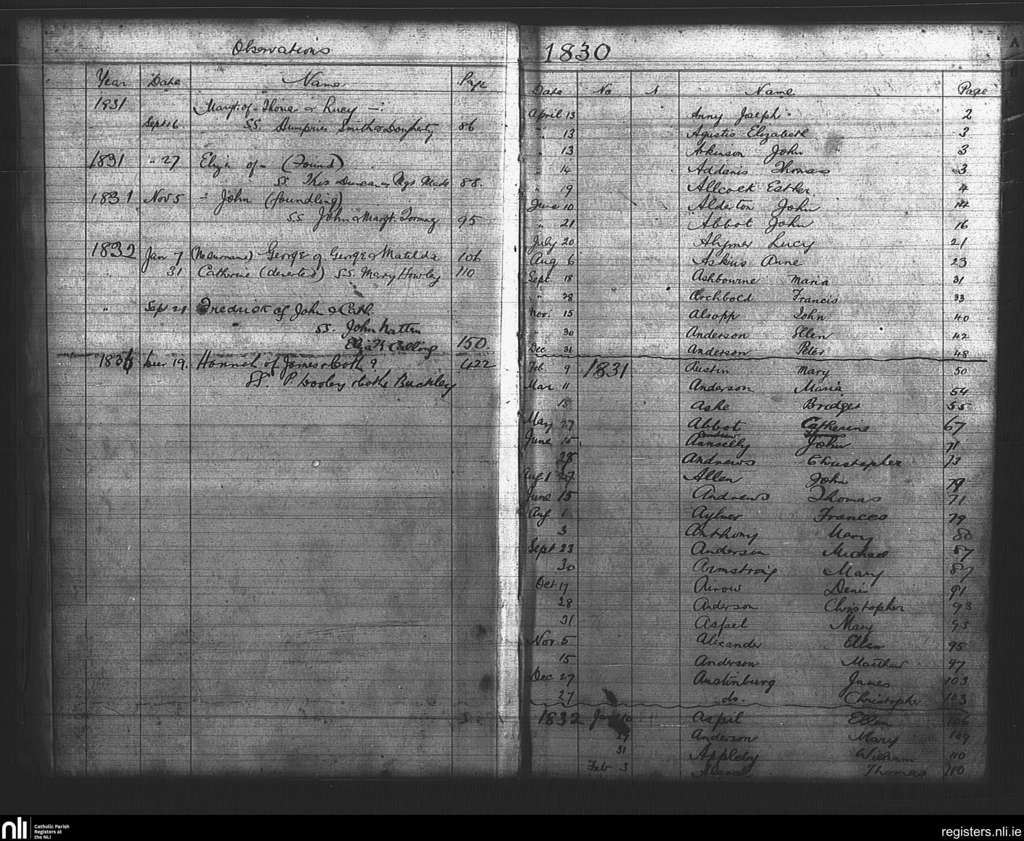 Observations
Year Date Name Page
1831 Margt of Thomas & Lucy —
Sept 16 SS. Dumpries Smith & Dogherty 86
1831 " 27 Eliza of - (Found)
SS. Thos Duncan 88.
1831 Nov 5 " John (foundling)
SS John & Margt 95
1832 Jan 7 George of George & Matilda 106
" 31 Catherine (deserted) SS. Mary Howley 110
" Sep 21 Fredrick of John & Cath
SS. John Natten
150
1836 19. Hannah of James & Cath 422
SS. P Wooley & Cathe Buckley
1830
Date No Name Page
April 13 Anny Joseph 2
" 13 Agustis Elizabeth 3
13 Atkinson John 3
" 14 Addams Thomas 3
" 19 Allcock Esther 4
June 10 Alderton John 14
" 21 Abbot John 16
July 20 Lucy 21
Aug 6 Askins Anne 23
Sept 18 Ashbourne Maria 31
" 28 Archbold Francis 33
Nov. 15 Alsopp John 40
" 30 Anderson Ellen 42
Dec 31 Anderson Peter 48
Feb 9 1831 Austin Mary 50
Mar 11 Anderson Maria 54
18 Ashe Bridget 55
May 27 Abbot Catherine 67
June 15 John 71
28 Andrews Christopher 73
Aug 1 Allen John 79
June 15 Andrews Thomas 71
Aug 1 Aylmer Frances 79
3 Anthony Mary 80
Sept 23 Anderson Michael 87
30 Armstrong Mary 87
Oct 17 Arrow Denis 91
28 Anderson Christopher 93
31 Aspel Mary 93
Nov. 5 Alexander Ellen 95
15 Anderson Matthew 97
Dec 27 Austinburg James 103
27 do. Christopher 103
1832 Aspil Ellen 106
29 Anderson Mary 109
31 Appleby William 110
Feb 3 Thomas 110
nli
Catholic Parish
Registers at
the NLI
registers.nli.ie